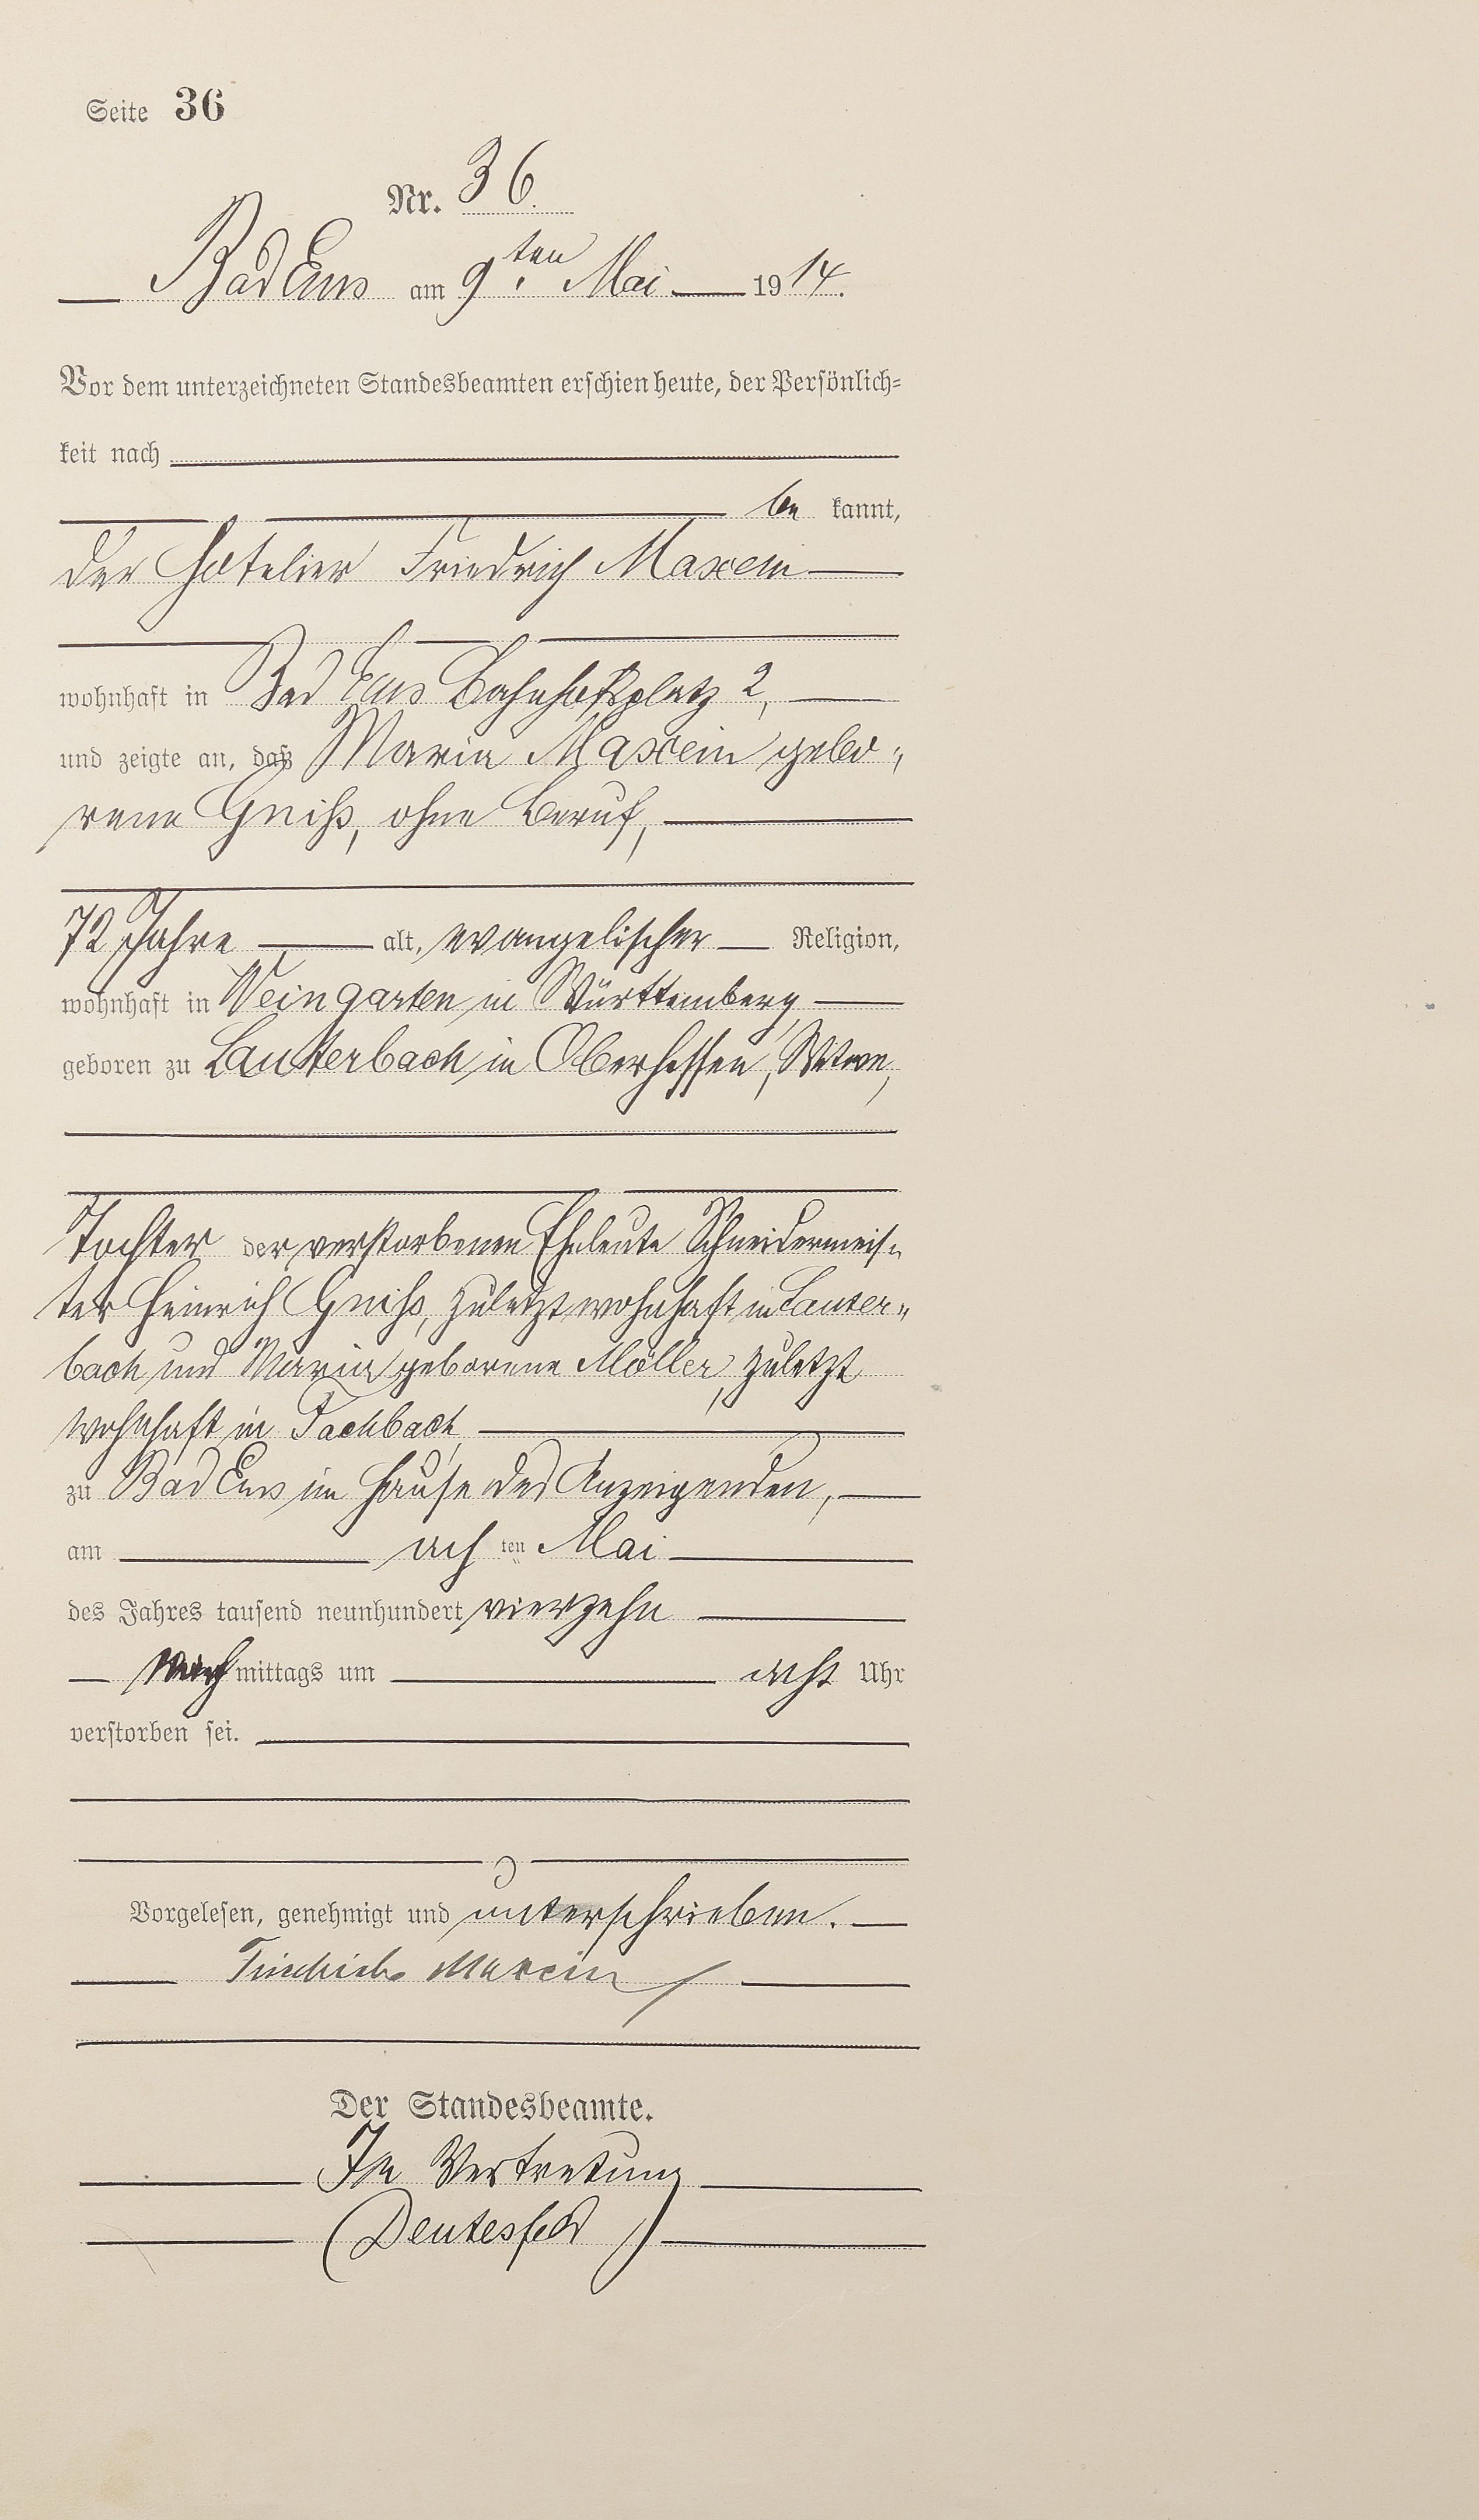 Seite 36
Nr. 36.
Bad Ems am 9ten Mai 1914.
Vor dem unterzeichneten Standesbeamten erschien heute, der Persönlich-
keit nach
be kannt,
der Hotelier Friedrich Maxein
wohnhaft in Bad Ems Bahnhofsplatz 2,
und zeigte an, daß Maria Maxein gebo-
rene Gniß, ohne Beruf,
72 Jahre alt, evangelischer Religion,
wohnhaft in Weingarten in Württemberg
geboren zu Lauterbach in Oberhessen, Witwe,
Tochter der verstorbenen Eheleute Schneidermeis-
ter Heinrich Gniß, zuletzt wohnhaft in Lauter-
bach und Maria geborene Möller, zuletzt
wohnhaft in Fachbach,
zu Bad Ems im Hause des Anzeigenden,
am ach ten Mai
des Jahres tausend neunhundert vierzehn
Nach mittags um acht Uhr
verstorben sei.
Vorgelesen, genehmigt und unterschrieben.
Friedrich Maxein
Der Standesbeamte.
In Vertretung
(Deutesfeld)